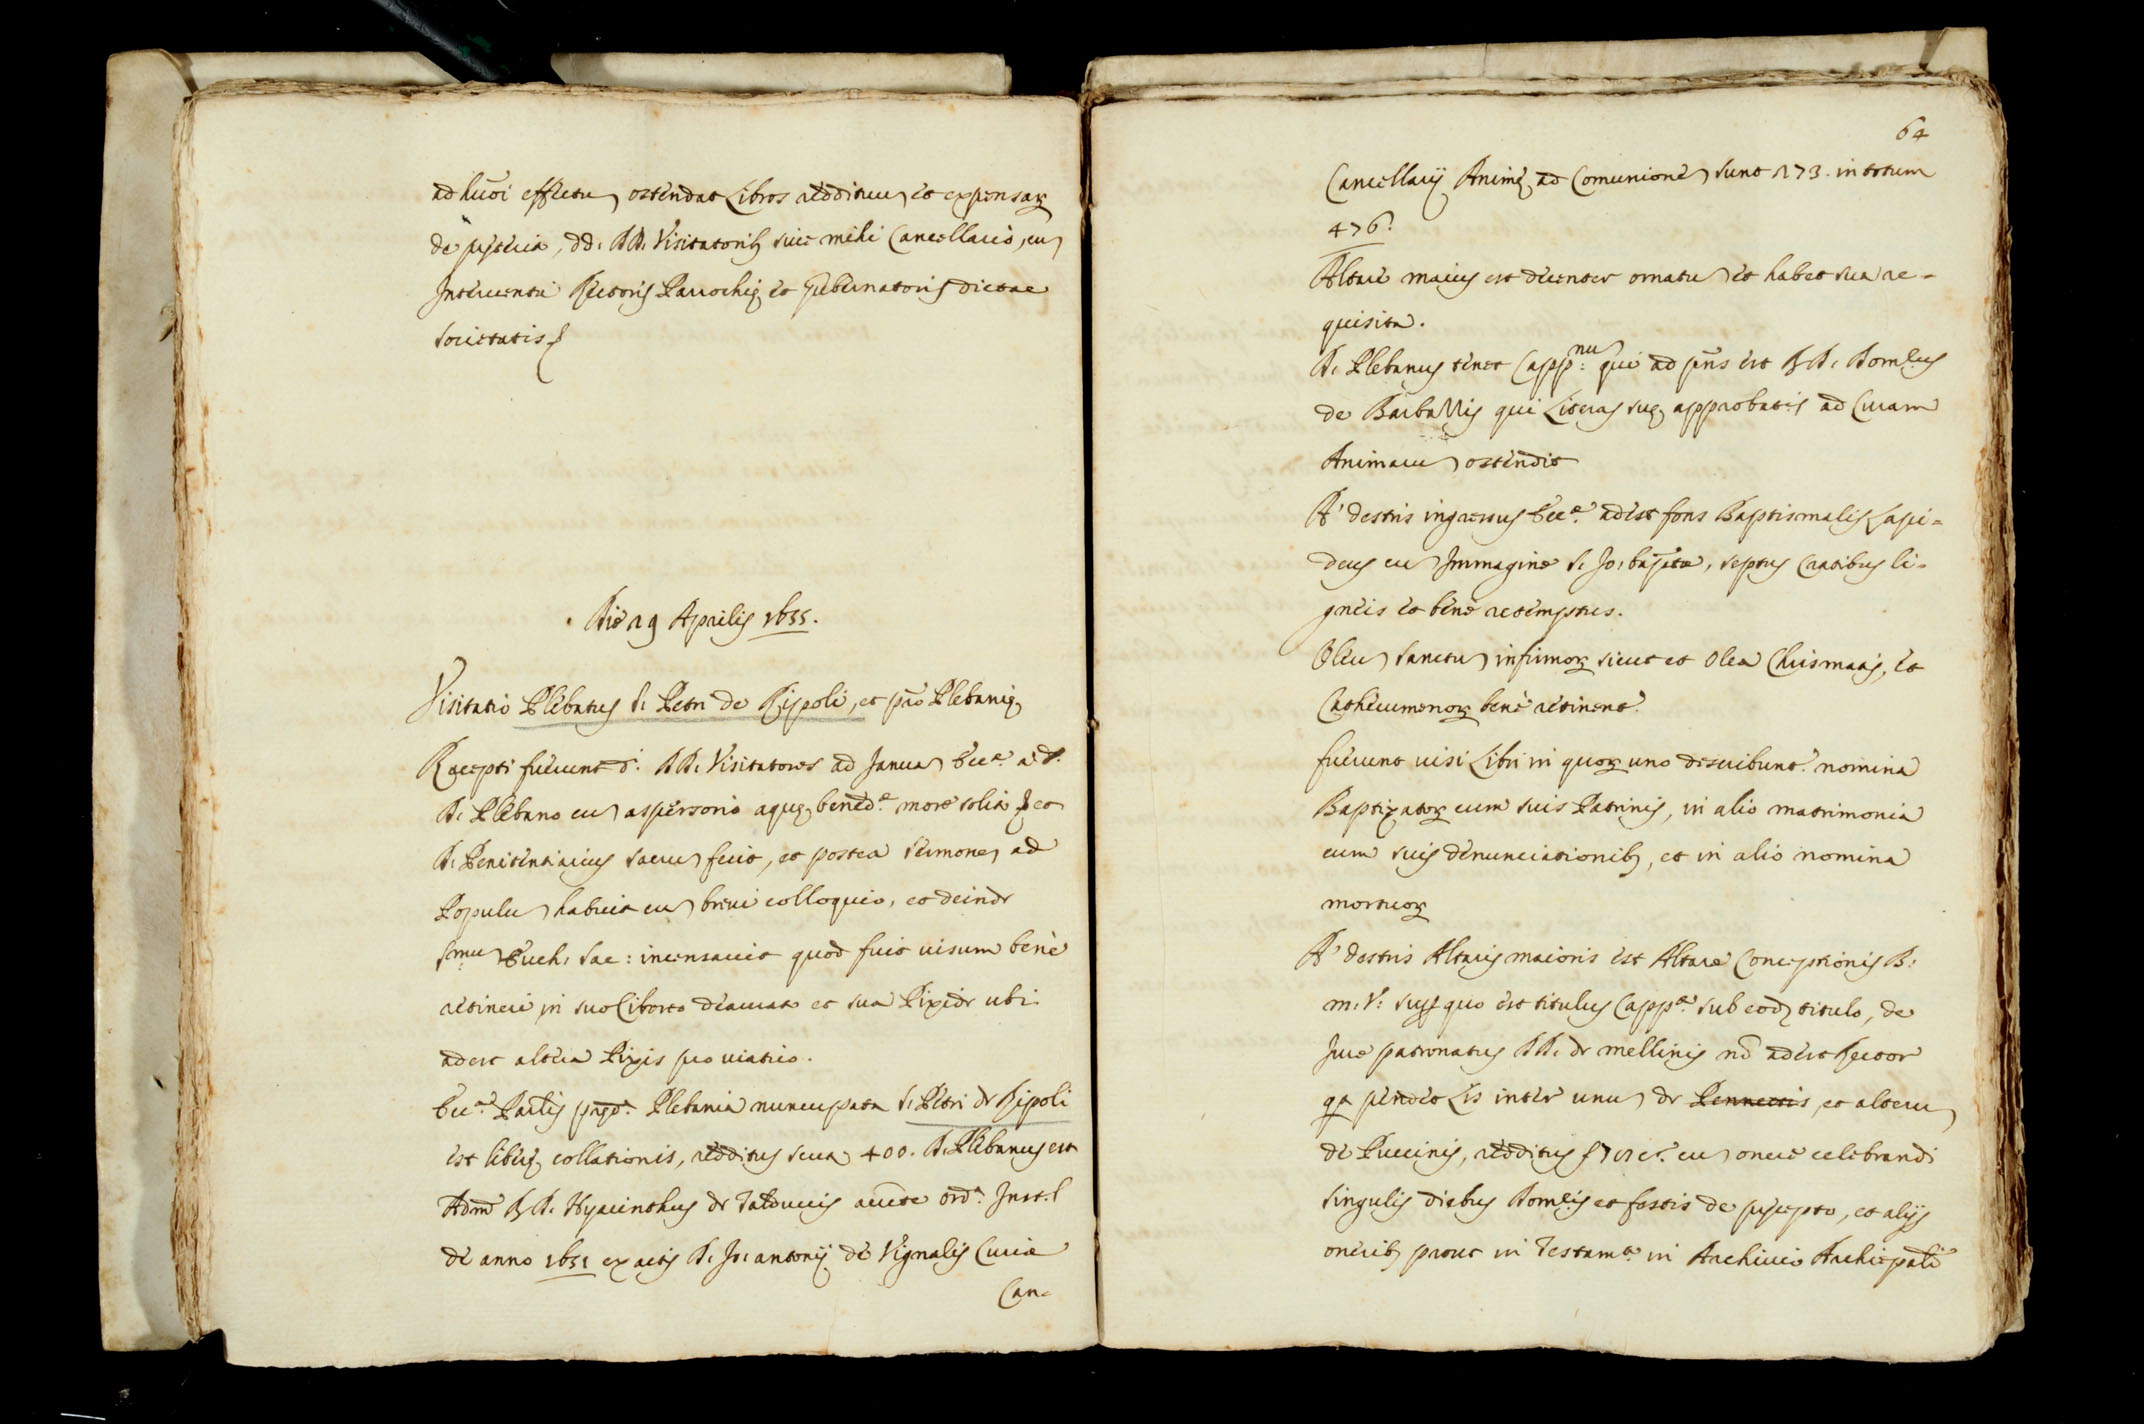 ad huõi effectu ostendat Libros reddituu et expensaꝝ
dd: DD. Visitatorib; sive mihi Cancellario, cu
Interventu Rectoris Parrochię et Gubernatoris dictae
Societatis
Die 29 Aprilis 1655.
Visitatio Plebatus S. Petri de Ripoli, et p̃o Plebanię
Recepti fuerunt d. DD. Visitatores ad Janua Ecc.ę a d.
D. Plebano cu aspersorio aquę bened.ę more solita et
D. Penitentiarius sacru fecit, et postea sermone ad
Populu habuit cu brevi colloquio, et deinde
S.mu Euch. Sac: incensavit quod fuit visum benè
retineri in suo Ciborio deaurato et sua Pixide ubi
adest altera Pixis pro viatico.
Ecc.ª Par̃lis Plebania nuncupata S. Petri de Ripoli
est liberę collationis, redditus scuta 400. D. Plebanus est
Adm̃ R D. Hyacinthus de Talduccis Ord.
de anno 1651 ex actis D. Jo: Antonij de Vignalis Curiae
Can-
64
Cancellarij Animę ad Comunione sunt 273. in totum
476.
Altare maius est decenter ornatu et habet sua re-
quisita.
D. Plebanus tenet Capp:nu qui ad p̃ns est R D. Dom.cus
de qui Literas suę approbatis ad Curam
Animaru ostendit
A' dextris ingressus Ecc.ę adest fons Baptismalis Lapi-
deus cu Immagine S. Jo: bap̃tae, septus Cratibus li-
gneis et benè
Oleu Sanctu infirmoꝝ sicut et Olea Chrismatis, et
Cathecumenoꝝ benè retinent.
fuerunt visi Libri in quoꝝ uno describunt. nomina
Baptizatoꝝ cum suis Patrinis, in alio matrimonia
cum suis denunciationib; et in alio nomina
mortuoꝝ
A' dextris Altaris maioris est Altare Conceptionis B:
M: V: sup quo est titulus Capp.ę sub eod titulo, de
Jure patronatus DD. de Mellinis nõ adest Rector
qa pendet Lis inter unu de Pennectis, et alteru
de Puccinis, redditus cu onere celebrandi
singulis diebus Dom.lis et festis de p̃cepto, et alijs
onerib; prout in Testam.to in Archivio Archiep̃ali